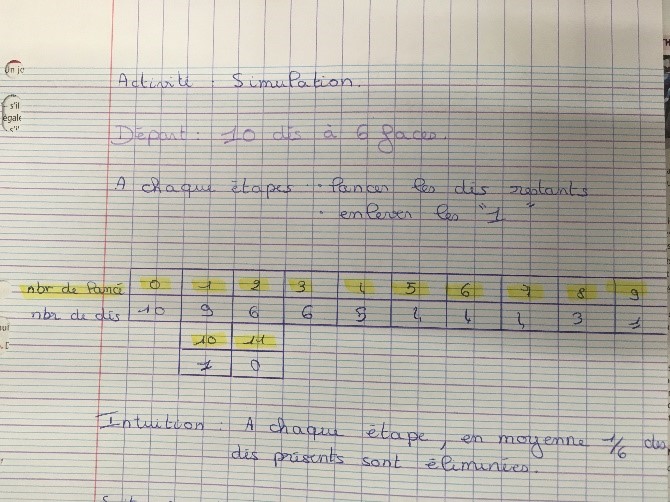 Activité : Simulation.
Départ : 10 dés à 6 faces.
A chaque étapes · lancer les dés restants
· enlever les "1"
nbr de lancé 0 1 2 3 4 5 6 7 8 9
nbr de dés 10 9 6 6 5 4 4 4 3 1
10 11
1 0
Intuition : A chaque étape, en moyenne 1/6 des
dés présents sont éliminées.